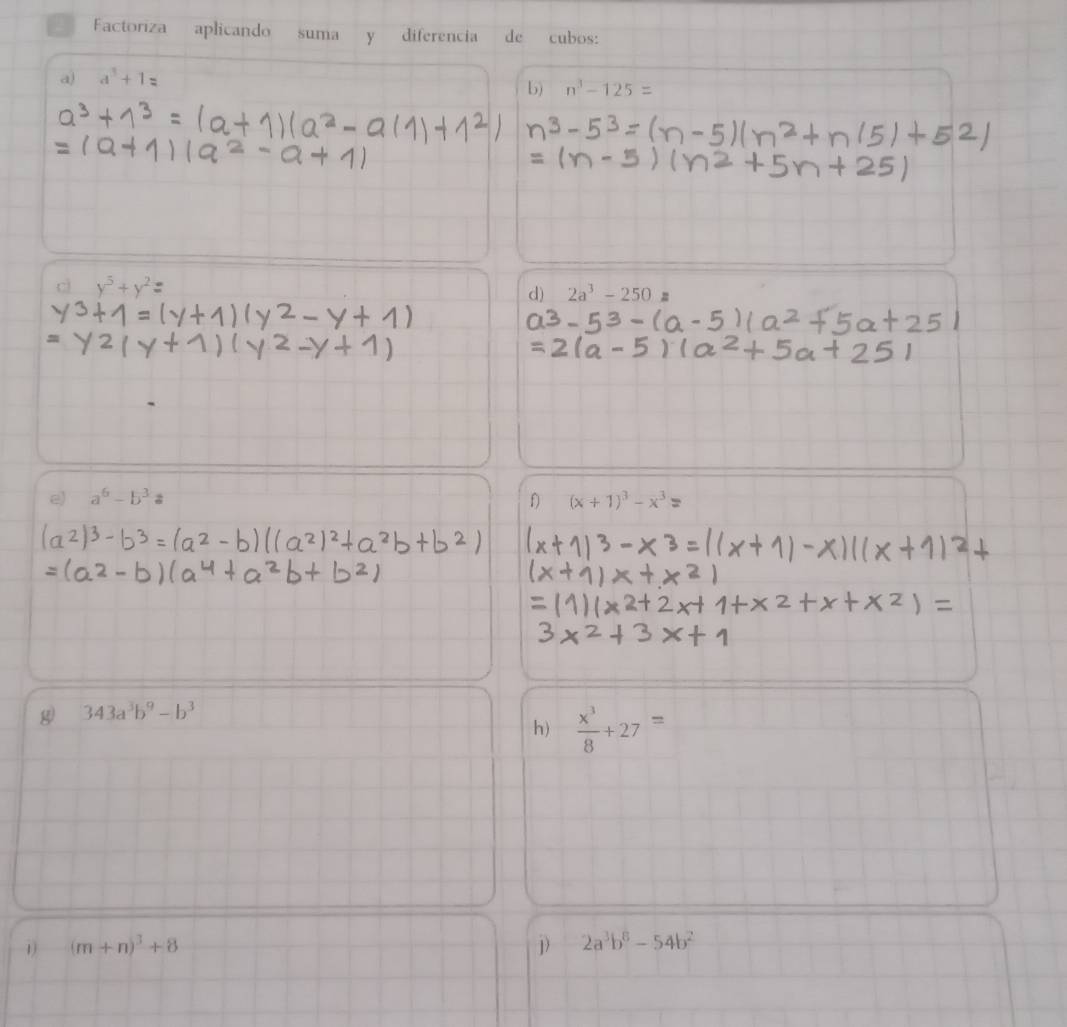 Factoriza aplicando suma y diferencia de cubos:
a) a³ + 1 =
a³ + 1³ = (a + 1)(a² - a(1) + 1²)
= (a + 1)(a² - a + 1)
b) n³ - 125 =
n³ - 5³ = (n - 5)(n² + n(5) + 52)
= (n - 5)(n2 + 5n + 25)
c) y⁵ + y² =
y3 + 1 = (y + 1)(y2 - y + 1)
= y2(y + 1)(y2 - y + 1)
d) 2a³ - 250 =
a3 - 53 - (a - 5)(a2 + 5a + 25)
= 2(a - 5)(a2 + 5a + 25)
e) a⁶ - b³ =
(a2)3 - b3 = (a2 - b)((a2)2 + a2b + b2)
= (a2 - b)(a4 + a2b + b2)
f) (x + 1)³ - x³ =
(x + 1)3 - x3 = ((x + 1) - x)((x + 1)2 +
(x + 1)x + x2)
= (1)(x2 + 2x + 1 + x2 + x + x2) =
3x2 + 3x + 1
g) 343a³b⁹ - b³
h) x³/8 + 27 =
i) (m + n)³ + 8
j) 2a³b⁸ - 54b²